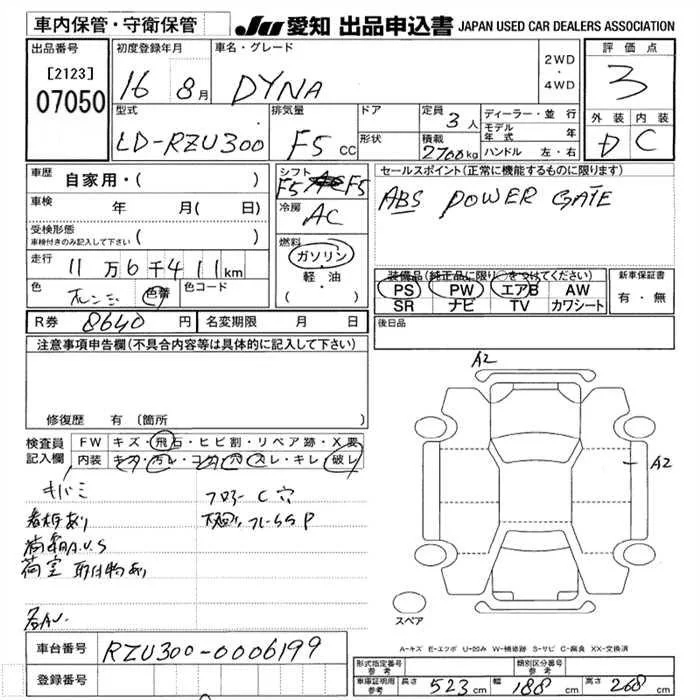 車内保管・守衛保管
JU 愛知 出品申込書 JAPAN USED CAR DEALERS ASSOCIATION
出品番号
[2123]
07050
初度登録年月
16 8月
車名・グレード
DYNA
2WD
・
4WD
評価点
3
外装 内装
D C
型式
LD-RZU300
排気量
F5 CC
ドア
形状
定員
3人
積載
2700kg
ディーラー・並行
モデル年式 年
ハンドル 左・右
車歴
自家用・( )
車検 年 月( 日)
受検形態
車検付きのみ記入して下さい ( )
走行
11万6千411km
色
オレンジ
色替
色コード
シフト
F5 F5
冷房
AC
燃料
ガソリン
・
軽・油
( )
セールスポイント(正常に機能するものに限ります)
ABS POWER GATE
装備品(純正品に限り○をつけてください)
PS PW エアB AW
SR ナビ TV カワシート
新車保証書
有・無
R券 8640円
名変期限 月 日
後日品
注意事項申告欄(不具合内容等は具体的に記入して下さい)
修復歴 有 〔箇所 〕
検査員
記入欄
FW キズ・飛石・ヒビ割・リペア跡・X要
内装 キズ・汚レ・コゲ・穴・スレ・キレ・破レ
キバミ
フロアーC穴
看板あり
荷台A.U.S
荷室 取付物あり
A2
A2
スペア
A-キズ E-エクボ U-凹み W-補修跡 S-サビ C-腐食 XX-交換済
車台番号
RZU300-0006199
登録番号
形式指定番号
参考
類別区分番号
参考
車庫証明用
参考
長さ 523cm 幅 188cm 高さ 268cm